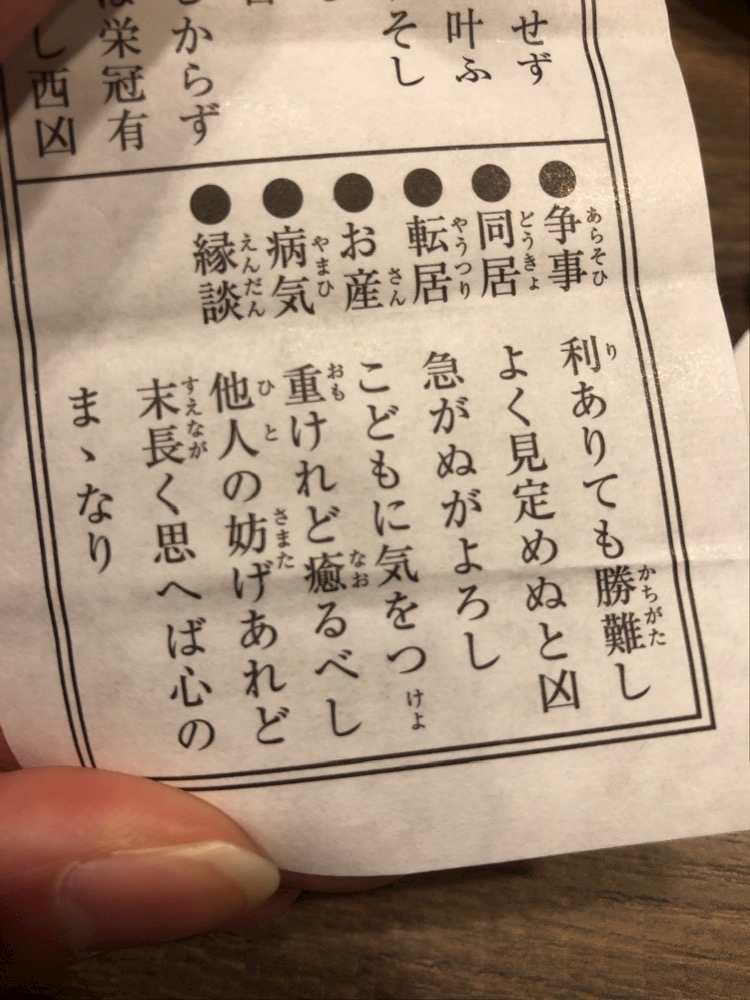 せず
叶ふ
そし
しからず
栄冠有
し西凶
●争事 利ありても勝難し
あらそひ り かちがた
●同居 よく見定めぬと凶
どうきょ
●転居 急がぬがよろし
やうつり
●お産 こどもに気をつけよ
さん
●病気 重けれど癒るべし
やまひ おも なお
●縁談 他人の妨げあれど
えんだん ひと さまた
末長く思へば心の
すえなが
まゝなり